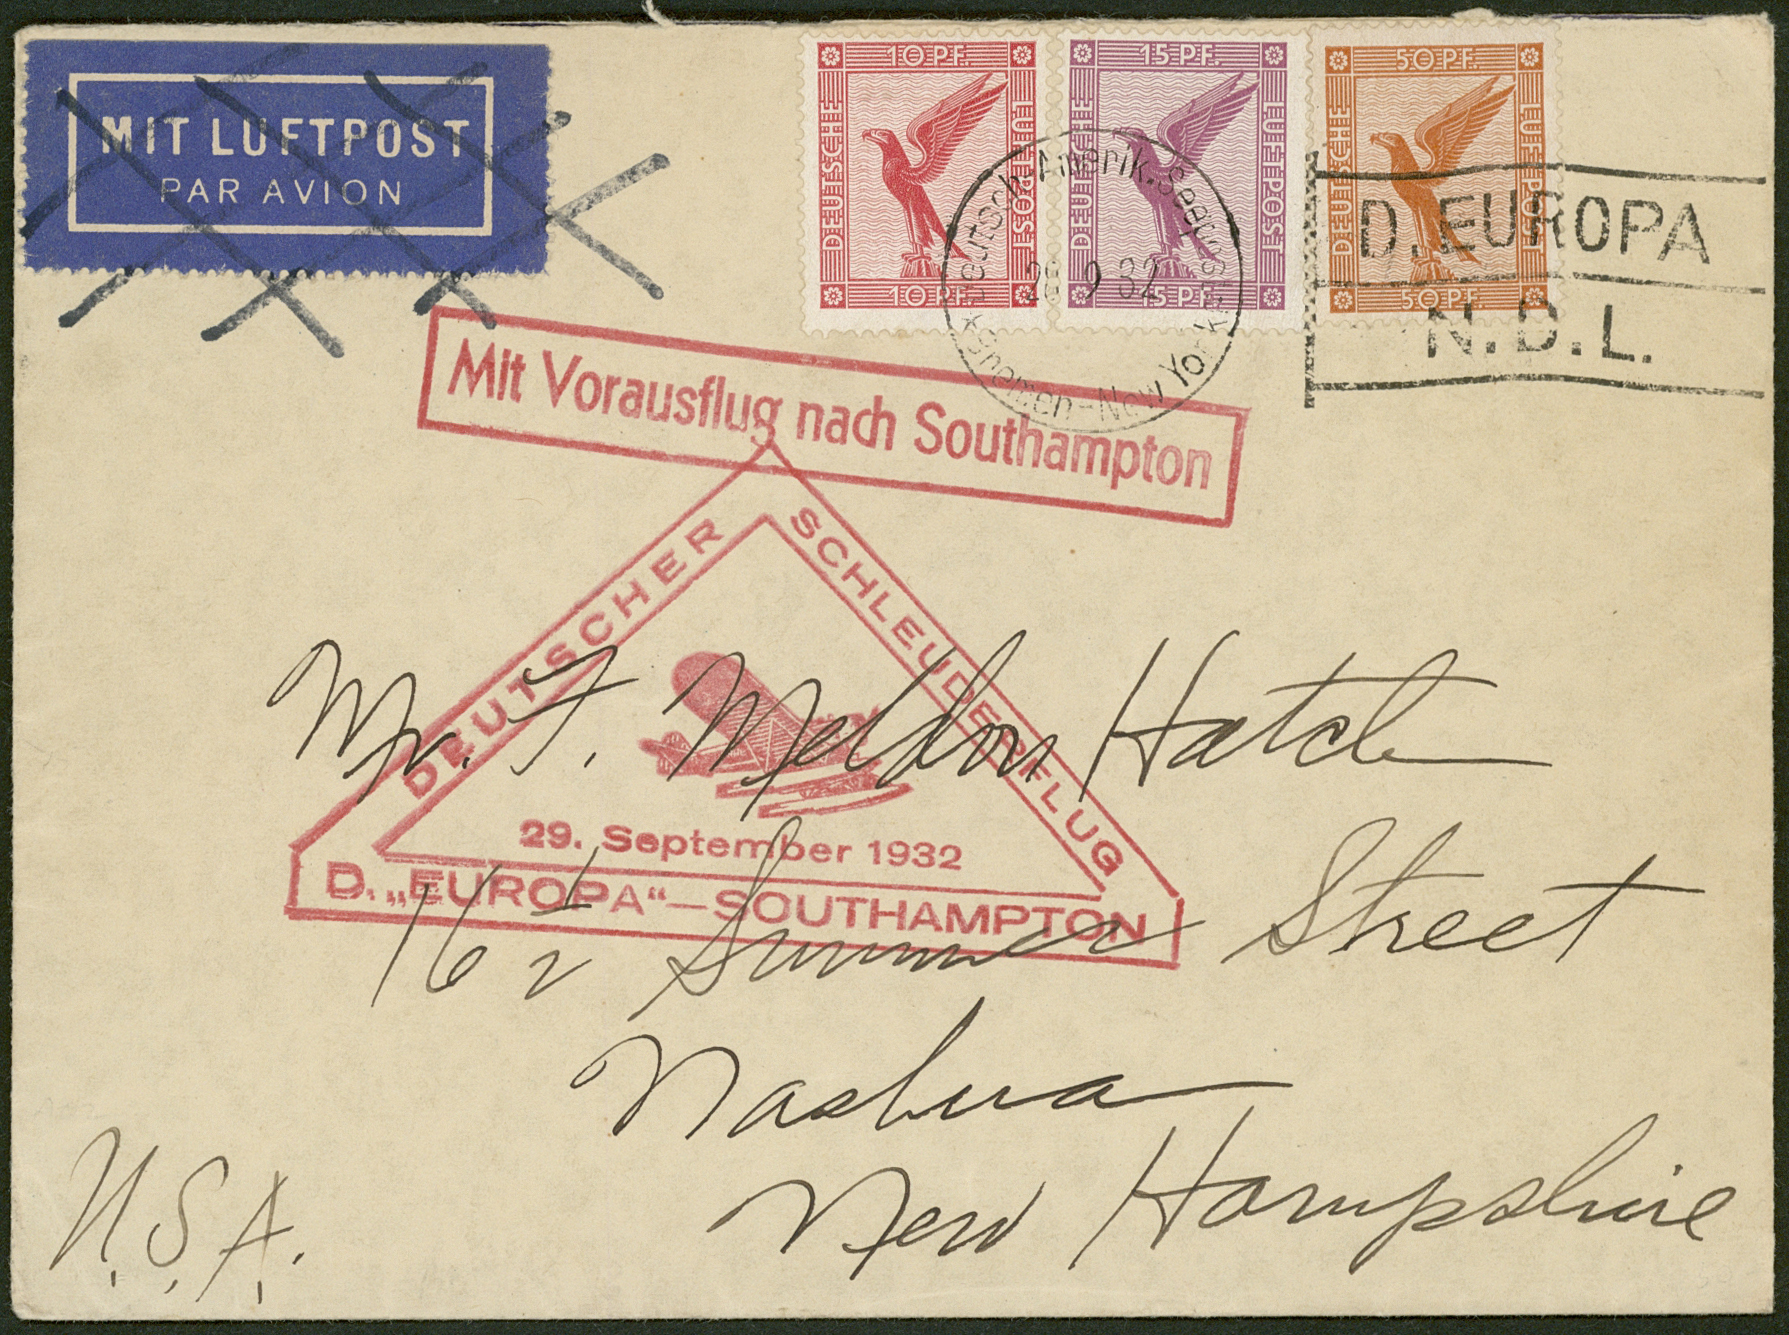 MIT LUFTPOST
PAR AVION
10 PF.
DEUTSCHE
LUFTPOST
10 PF.
15 PF.
DEUTSCHE
LUFTPOST
15 PF.
50 PF.
DEUTSCHE
LUFTPOST
50 PF.
Deutsch-Amerik. Seepost
28 9 32
Bremen-New York
D. EUROPA
N.D.L.
Mit Vorausflug nach Southampton
DEUTSCHER SCHLEUDERFLUG
29. September 1932
D. „EUROPA“—SOUTHAMPTON
Mr. F. Meldon Hatch
16½ Summer Street
Nashua
New Hampshire
U.S.A.